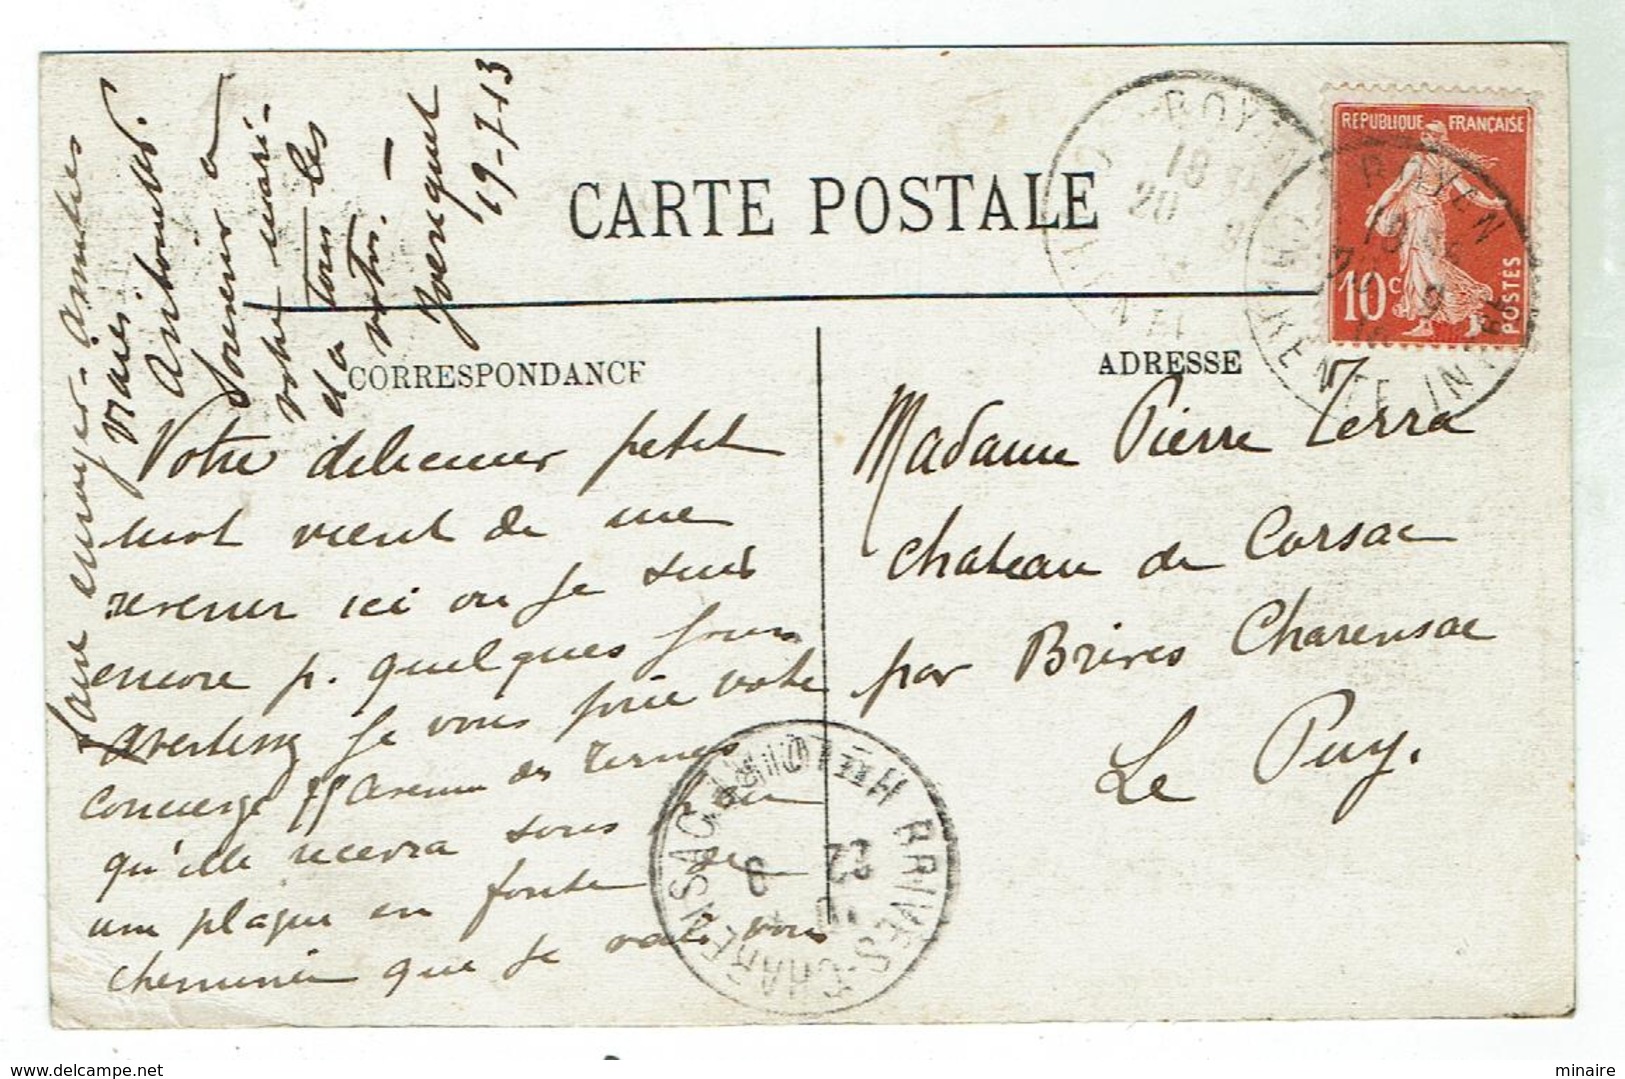 CARTE POSTALE
CORRESPONDANCE
ADRESSE
REPUBLIQUE FRANÇAISE
10c
POSTES
ROYAN
18
20
ROYAN
CHARENTE INFRE
BRIVES-CHARENSAC
HTE LOIRE
22
9
Votre délicieux petit
mot vient de me
revenir ici où je suis
encore p. quelques jours
avertissez je vous prie votre
concierge avenue des Ternes
qu'elle recevra sous peu
une plaque en fonte de
cheminée que je vais vous
faire envoyer - amitiés
vraies
Souvenir à
votre mari -
et à tous les
vôtres. -
19-7-13
Madame Pierre Terra
Chateau de Corsac
par Brives Charensac
Le Puy.
minaire
delcampe.net